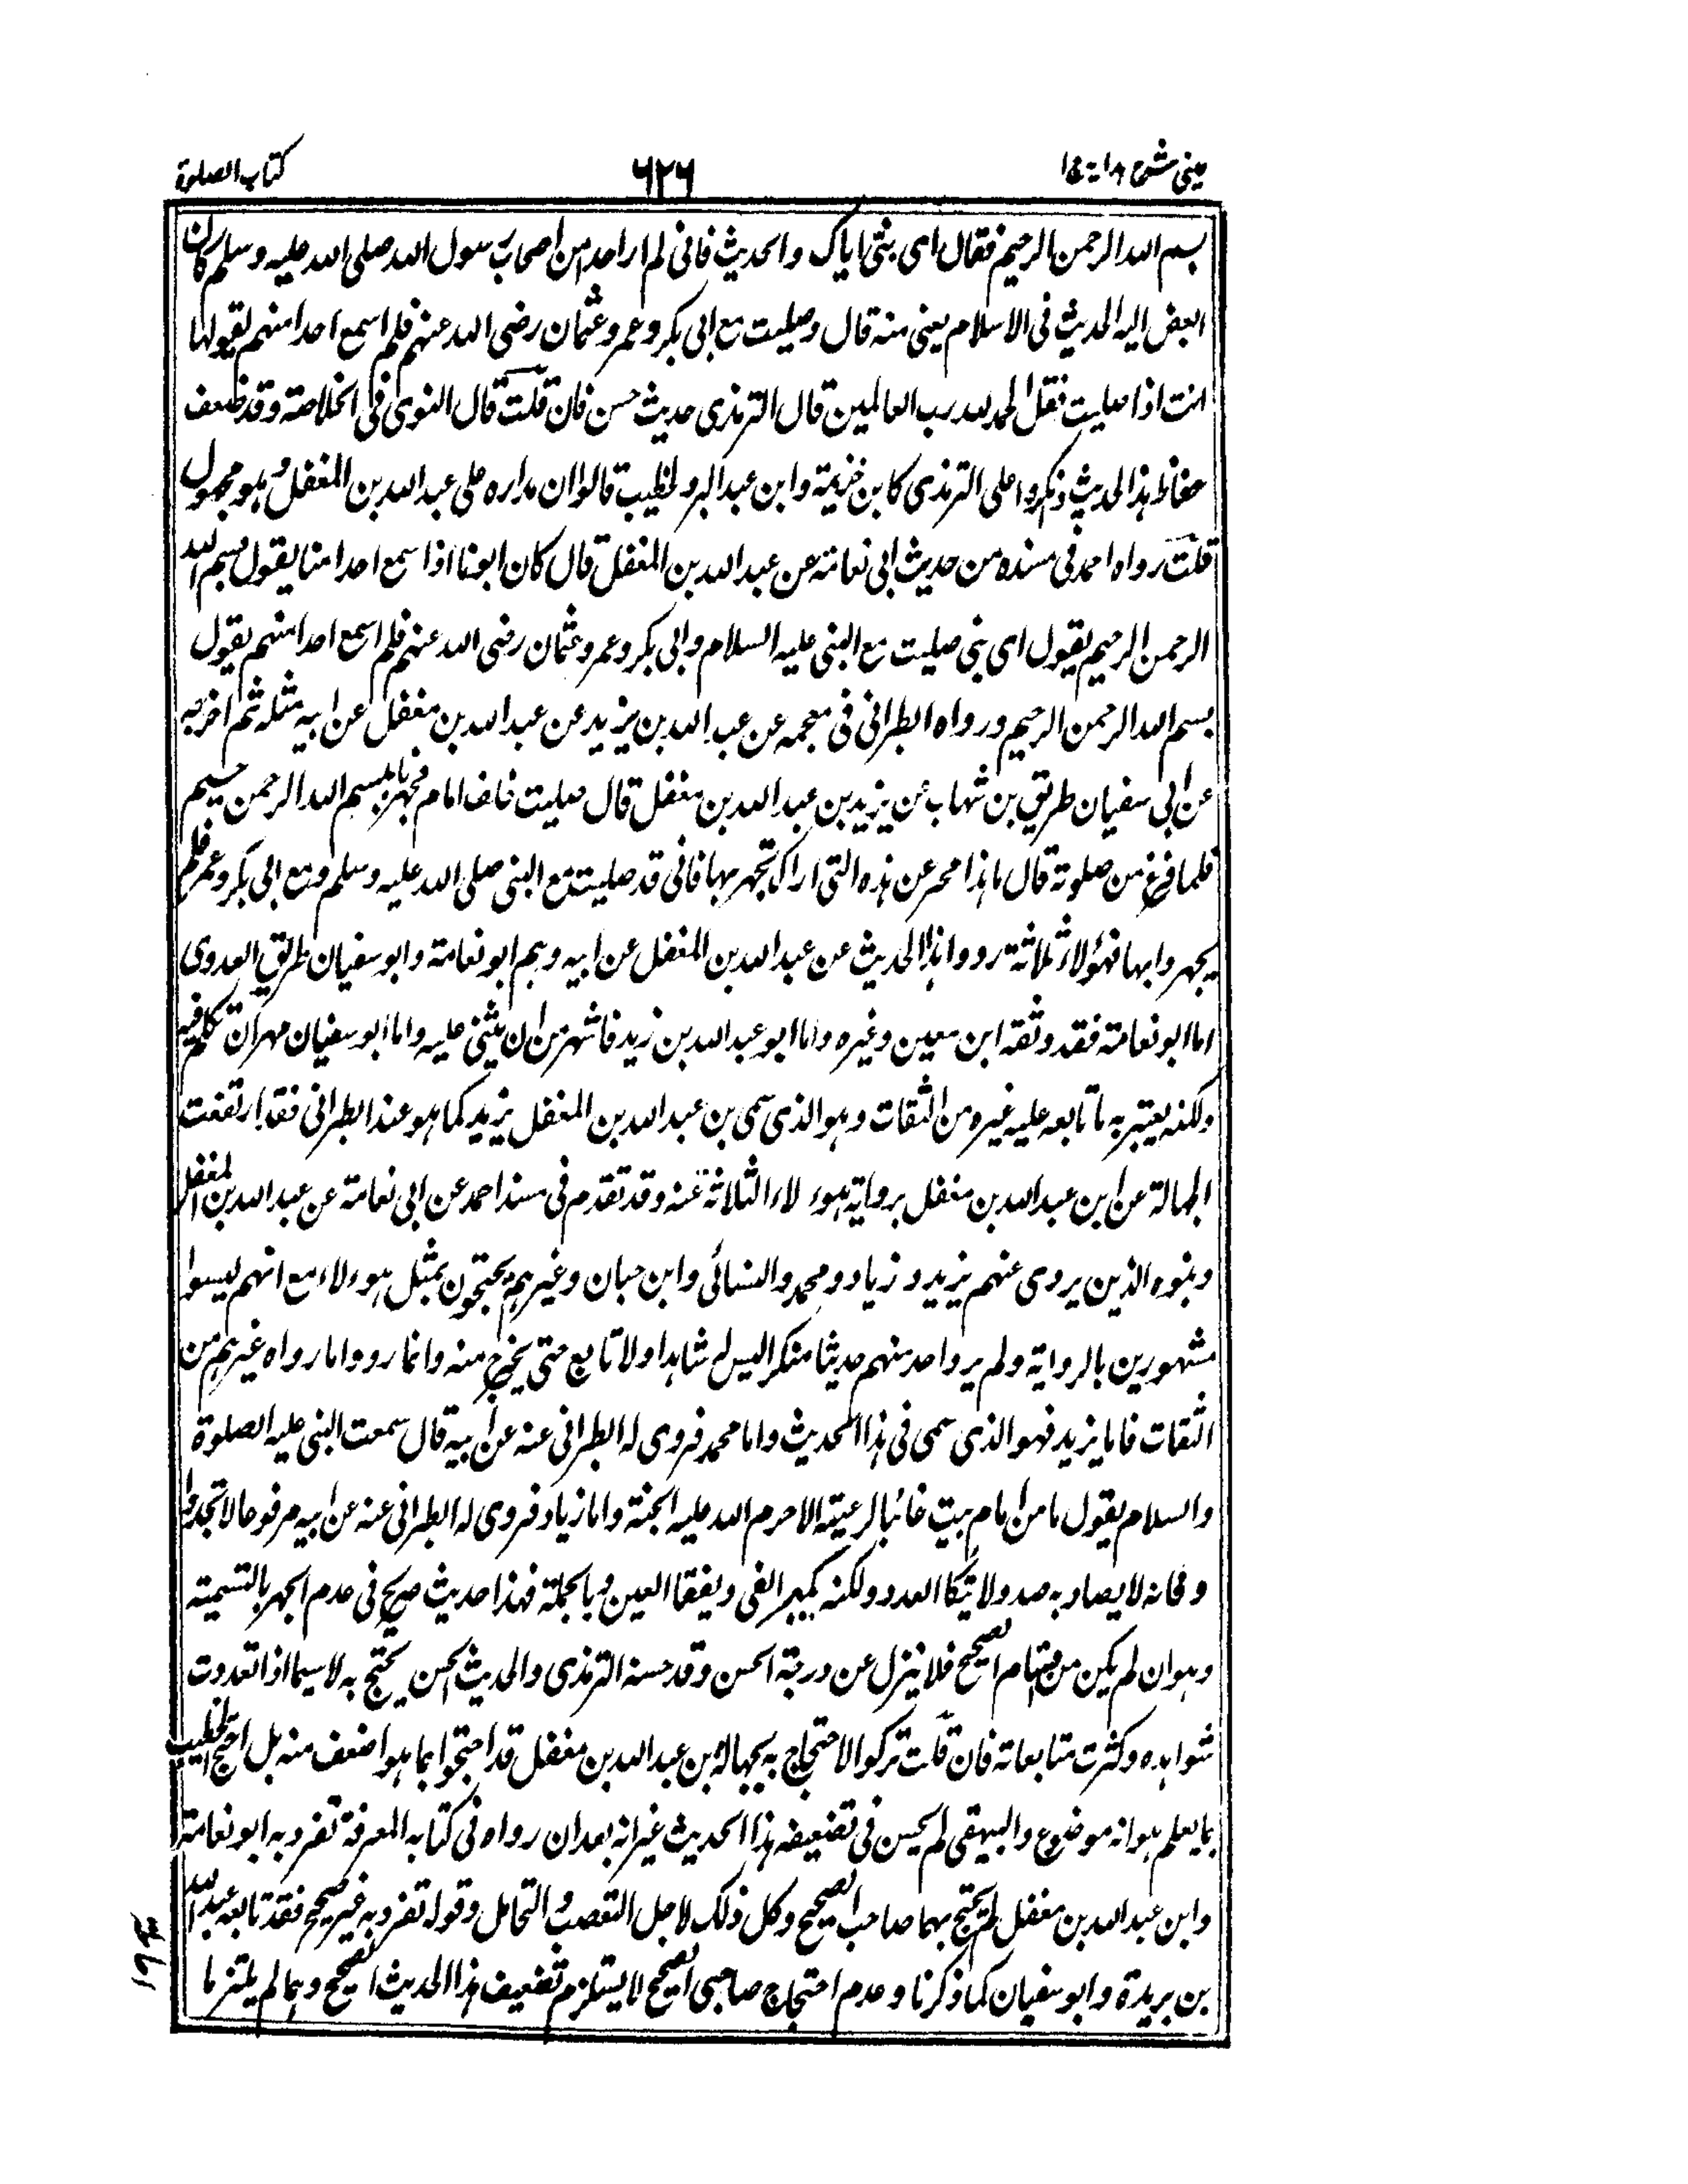 عینی شرح ہدایۃ ۶۲۶ کتاب الصلوۃ
بسم اللہ الرحمن الرحیم فقال ای بنی ایاک والحدیث فانی لم ار احدا من اصحاب رسول اللہ صلی اللہ علیہ وسلم کان
ابغض الیہ الحدیث فی الاسلام یعنی منہ قال وصلیت مع ابی بکر وعمر وعثمان رضی اللہ عنہم فلم اسمع احدا منہم یقولہا
انت اذا صلیت فقل الحمد للہ رب العالمین قال الترمذی حدیث حسن فان قلت قال النووی فی الخلاصۃ وقد ضعف
حفاظ ہذا الحدیث وذکروا علی الترمذی کابن خزیمۃ وابن عبد البر والخطیب قالوا ان مدارہ علی عبد اللہ بن المغفل وہو مجہول
قلت رواہ احمد فی مسندہ من حدیث ابی نعامۃ عن عبد اللہ بن المغفل قال کان ابونا اذا سمع احدا منا یقول بسم اللہ
الرحمن الرحیم یقول ای بنی صلیت مع النبی علیہ السلام وابی بکر وعمر وعثمان رضی اللہ عنہم فلم اسمع احدا منہم یقول
بسم اللہ الرحمن الرحیم ورواہ الطبرانی فی معجمہ عن عبد اللہ بن یزید عن عبد اللہ بن مغفل عن ابیہ مثلہ ثم اخرجہ
عن ابی سفیان طریق بن شہاب عن یزید بن عبد اللہ بن مغفل قال صلیت خلف امام فجہر ببسم اللہ الرحمن الرحیم
فلما فرغ من صلوتہ قال ما ہذا عن ہذہ التی اراک تجہر بہا فانی قد صلیت مع النبی صلی اللہ علیہ وسلم ومع ابی بکر وعمر فلم
یجہروا بہا فہؤلاء ثلاثۃ رووا ہذا الحدیث عن عبد اللہ بن المغفل عن ابیہ وہم ابو نعامۃ وابو سفیان طریق العدوی
اما ابو نعامۃ فقد وثقہ ابن معین وغیرہ واما ابو عبد اللہ بن زید فاشہر من ان یثنی علیہ واما ابو سفیان مہران تکلم فیہ
ولکنہ یعتبر بہ ما تابعہ علیہ غیرہ من الثقات وہو الذی سمی بن عبد اللہ بن المغفل یزید کما ہو عند الطبرانی فقد ارتفعت
الجہالۃ عن ابن عبد اللہ بن مغفل بروایۃ ہوءلاء الثلاثۃ عنہ وقد تقدم فی مسند احمد عن ابی نعامۃ عن عبد اللہ بن المغفل
وبنوہ الذین یروی عنہم یزید وزیاد ومحمد والنسائی وابن حبان وغیرہم یحتجون بمثل ہوءلاء مع انہم لیسوا
مشہورین بالروایۃ ولم یرو احد منہم حدیثا منکرا لیس لہ شاہد ولا تابع حتی یخرج منہ وانما رووا ما رواہ غیرہم من
الثقات فاما یزید فہو الذی سمی فی ہذا الحدیث واما محمد فروی لہ الطبرانی عنہ عن ابیہ قال سمعت النبی علیہ الصلوۃ
والسلام یقول ما من امام یبیت غائبا لرعیتہ الا حرم اللہ علیہ الجنۃ واما زیاد فروی لہ الطبرانی عنہ عن ابیہ مرفوعا لا
فانہ لا یصاد بہ صید ولا ینکا العدو ولکنہ یکسر ویفقا العین وبالجملۃ فہذا حدیث صریح فی عدم الجہر بالتسمیۃ
وہو ان لم یکن من الصحیح فلا ینزل عن درجۃ الحسن وقد حسنہ الترمذی والحدیث الحسن یحتج بہ لا سیما اذا تعددت
شواہدہ وکثرت متابعاتہ فان قلت ترکوا الاحتجاج بہ بجہالۃ بن عبد اللہ بن مغفل قد احتجوا بما ہو اضعف منہ بل احتج الخطیب
بما یعلم ہو انہ موضوع والبیہقی لم یحسن فی تضعیفہ ہذا الحدیث غیر انہ بعد ان رواہ فی کتابہ المعرفۃ تفرد بہ ابو نعامۃ
وابن عبد اللہ بن مغفل لم یحتج بہما صاحب الصحیح وکل ذلک لاجل التعصب والتحامل وقولہ تفرد بہ غیر صحیح فقد تابعہ عبد اللہ
بن بریدۃ وابو سفیان کما ذکرنا وعدم احتجاج صاحبی الصحیح لا یستلزم تضعیف ہذا الحدیث الصحیح وہما لم یلتزما